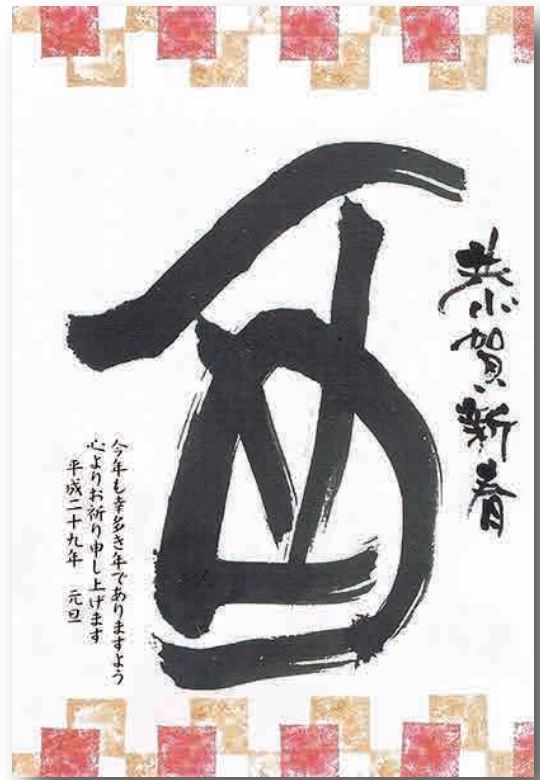 恭賀新春
酉
今年も幸多き年でありますよう
心よりお祈り申し上げます
平成二十九年 元旦